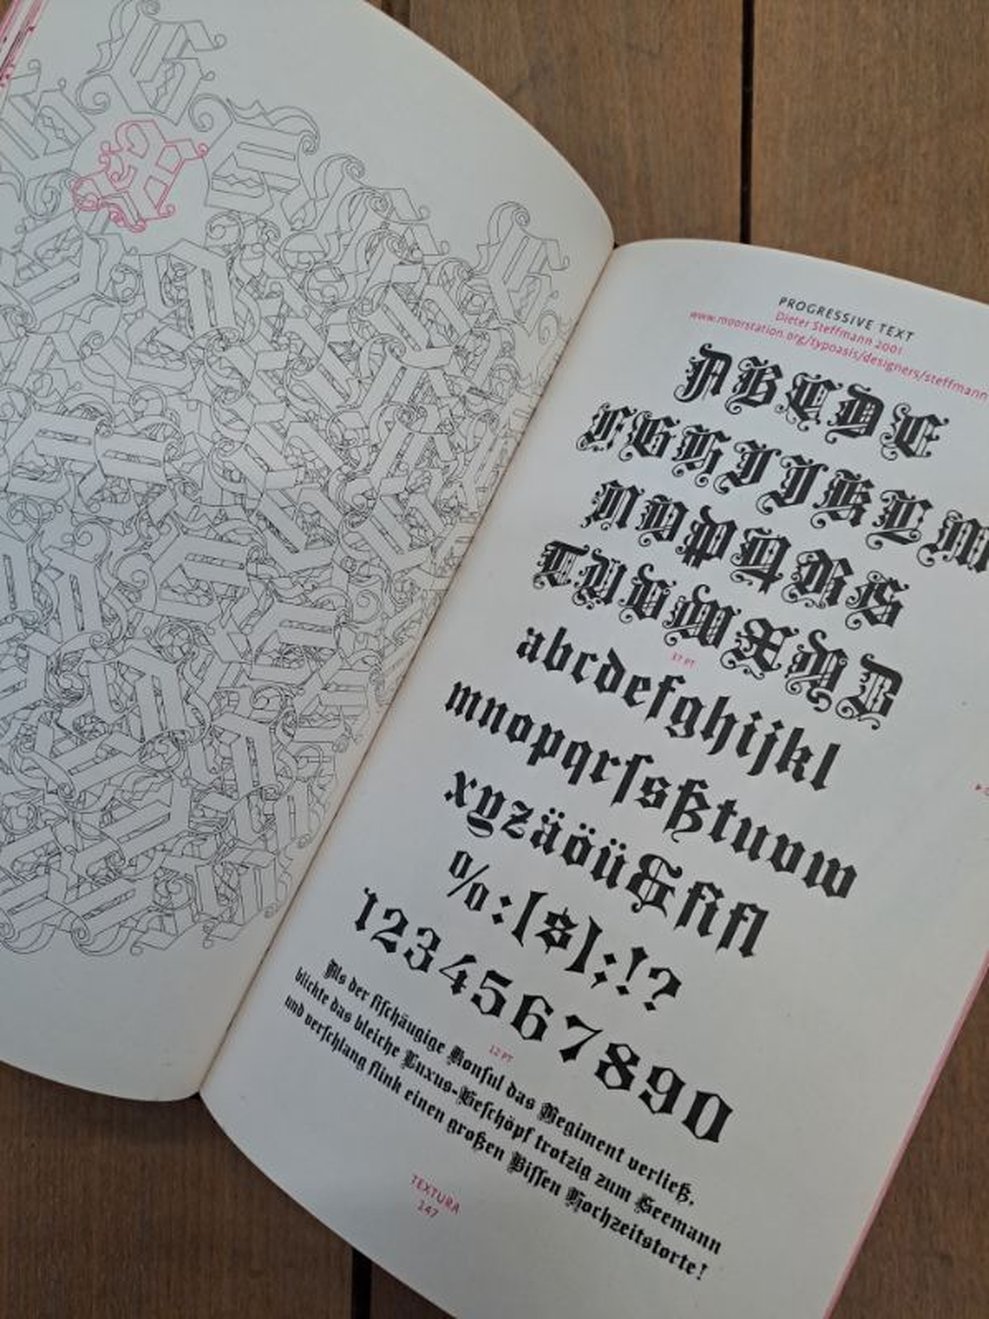 PROGRESSIVE TEXT
Dieter Steffmann 2001
www.moorstation.org/typoasis/designers/steffmann
ABCDE
FGHIJKLM
NOPQRS
TUVWXYZ
37 PT
abcdefghijkl
mnopqrſsßtuvw
xyzäöü&fifl
%:[$];!?
1234567890
12 PT
Als der fiſchäugige Konſul das Regiment verließ,
blickte das bleiche Luxus-Geſchöpf trotzig zum Seemann
und verſchlang flink einen großen Biſſen Hochzeitstorte!
TEXTURA
147